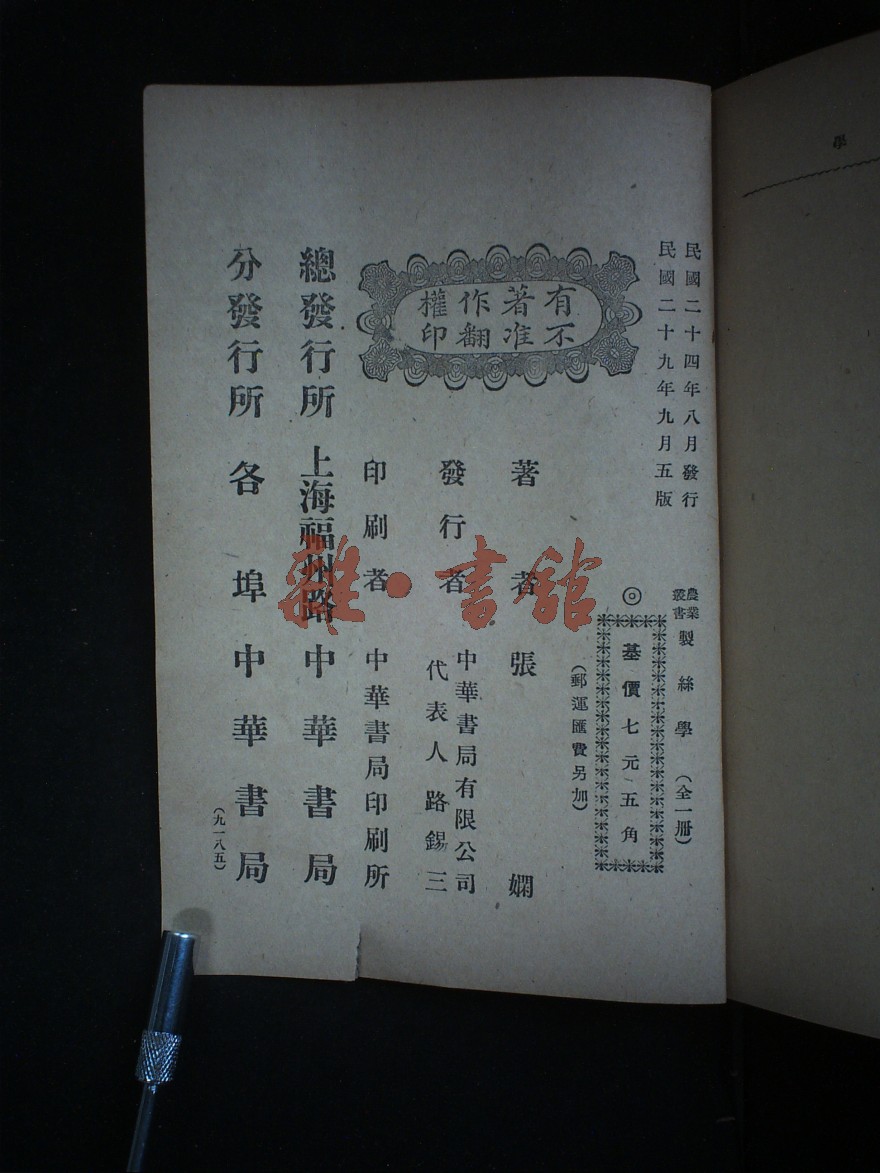 民國二十四年八月發行
民國二十九年九月五版
農業叢書 製絲學（全一冊）
◎基價七元五角
（郵運匯費另加）
著者 張嫻
發行者 中華書局有限公司
代表人路錫三
印刷者 中華書局印刷所
有著作權
不准翻印
總發行所 上海福州路 中華書局
分發行所 各埠中華書局
（九一八五）
學
雜·書館